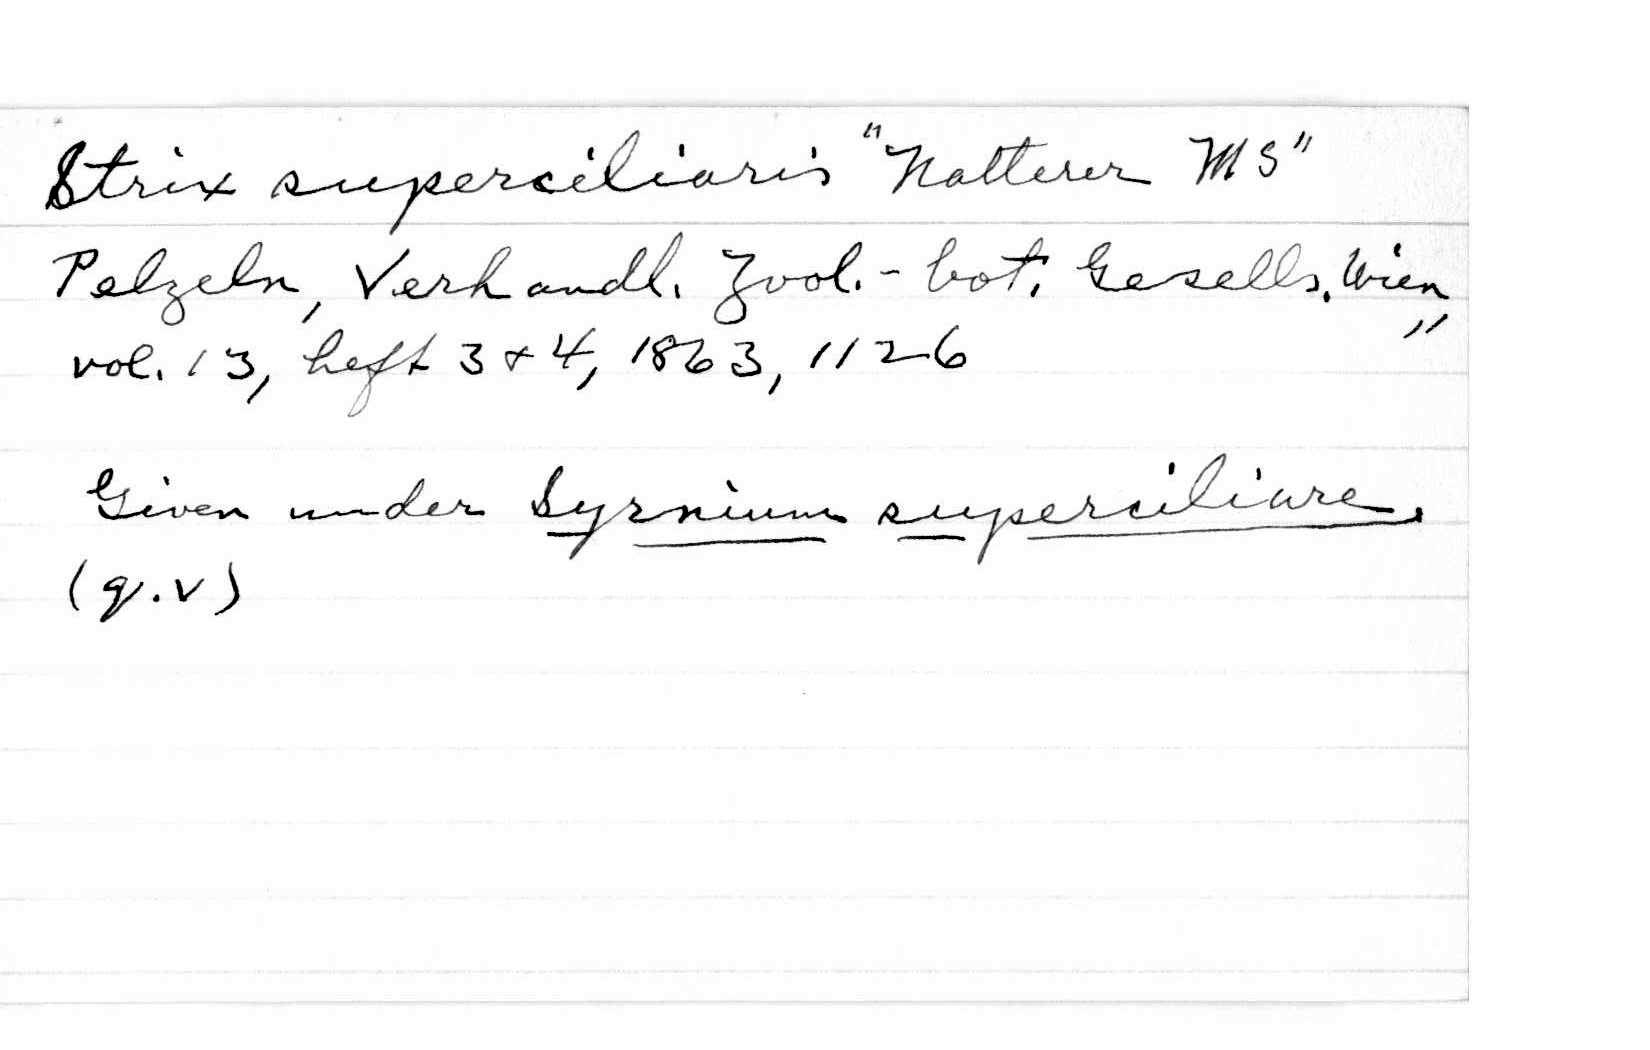 Strix superciliaris "Natterer MS"
Pelzeln, Verhandl. Zool.-bot. Gesells. Wien,
vol. 13, heft 3 & 4, 1863, 1126
Given under Syrnium superciliare.
(q.v)